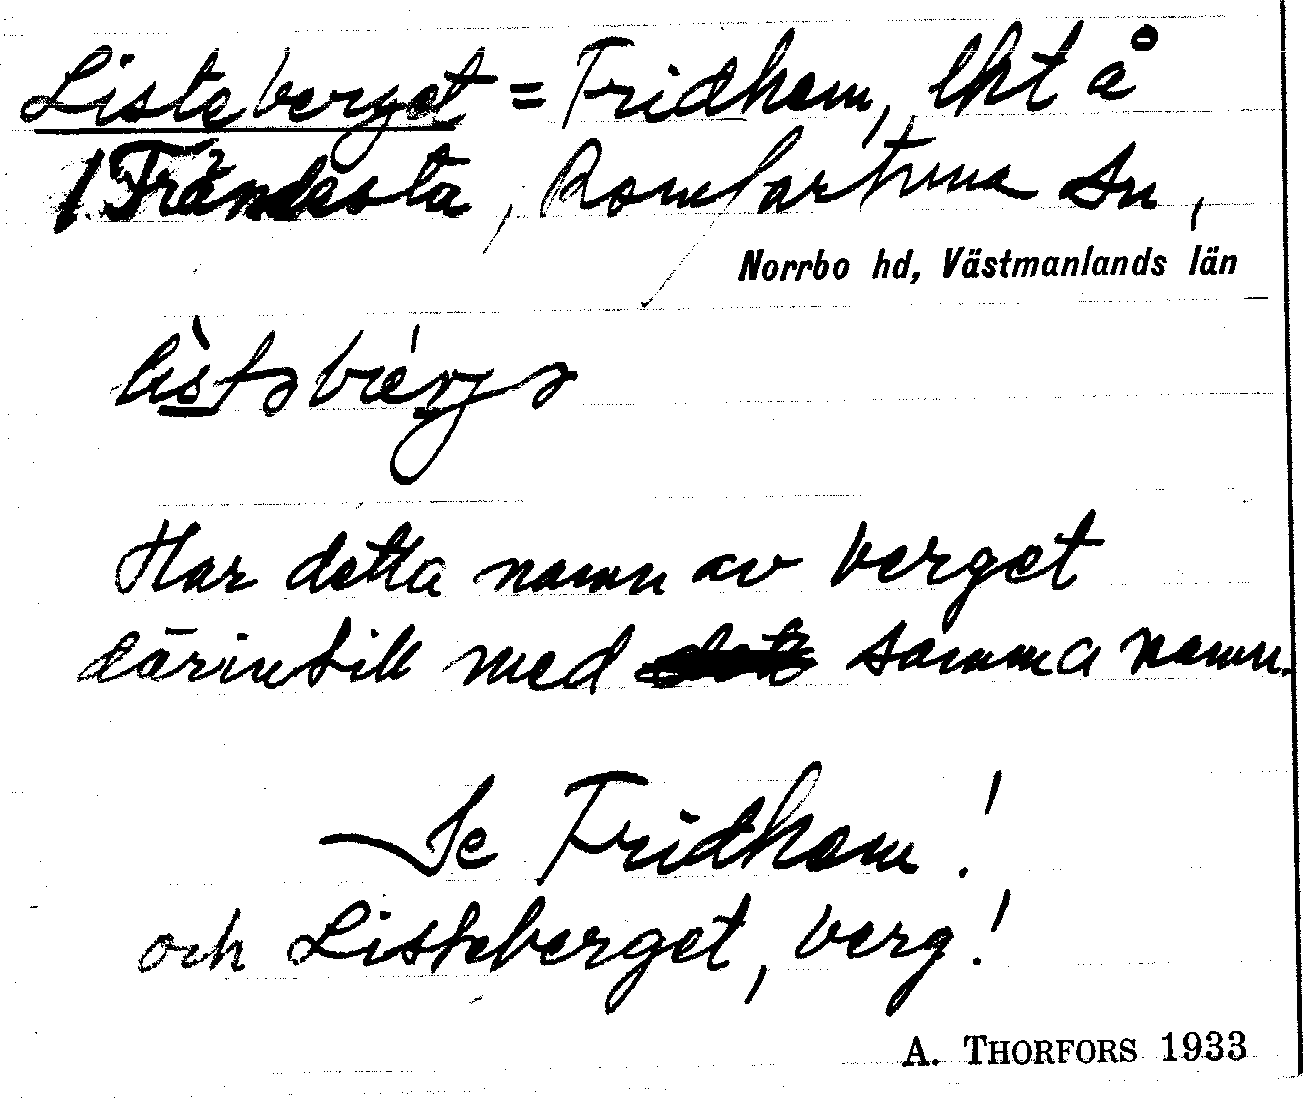 Listeberget = Fridhem, lht å
1 Frändesta, Romfartuna sn,
Norrbo hd, Västmanlands län
Har detta namn av berget
därintill med samma namn.
Se Fridhem!
och Listeberget, berg!
A. THORFORS 1933